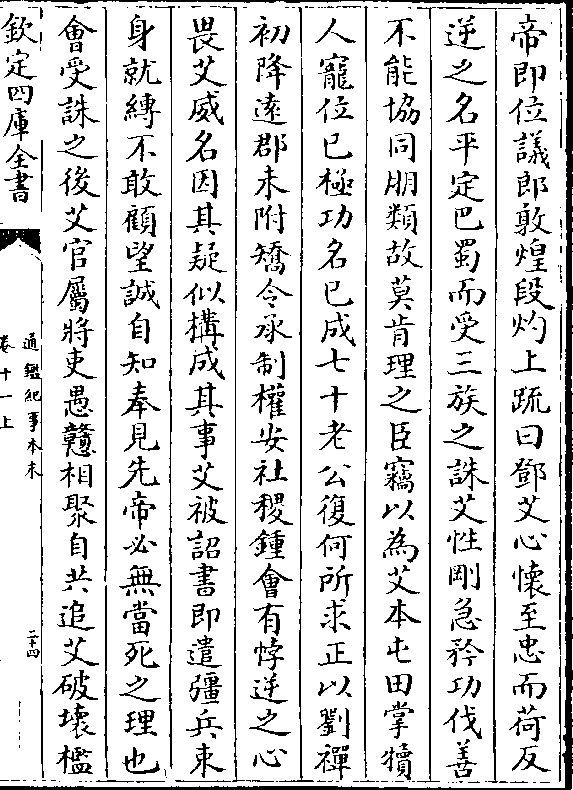 帝即位議郎敦煌段灼上疏曰鄧艾心懷至忠而荷反
逆之名平定巴蜀而受三族之誅艾性剛急矜功伐善
不能協同朋類故莫肯理之臣竊以為艾本屯田掌犢
人寵位已極功名已成七十老公復何所求正以劉禪
初降遠郡未附矯令承制權安社稷鍾會有悖逆之心
畏艾威名因其疑似構成其事艾被詔書即遣彊兵束
身就縛不敢顧望誠自知奉見先帝必無當死之理也
會受誅之後艾官屬將吏愚戇相聚自共追艾破壞檻
欽定四庫全書
通鑑紀事本末
卷十一上
二十四